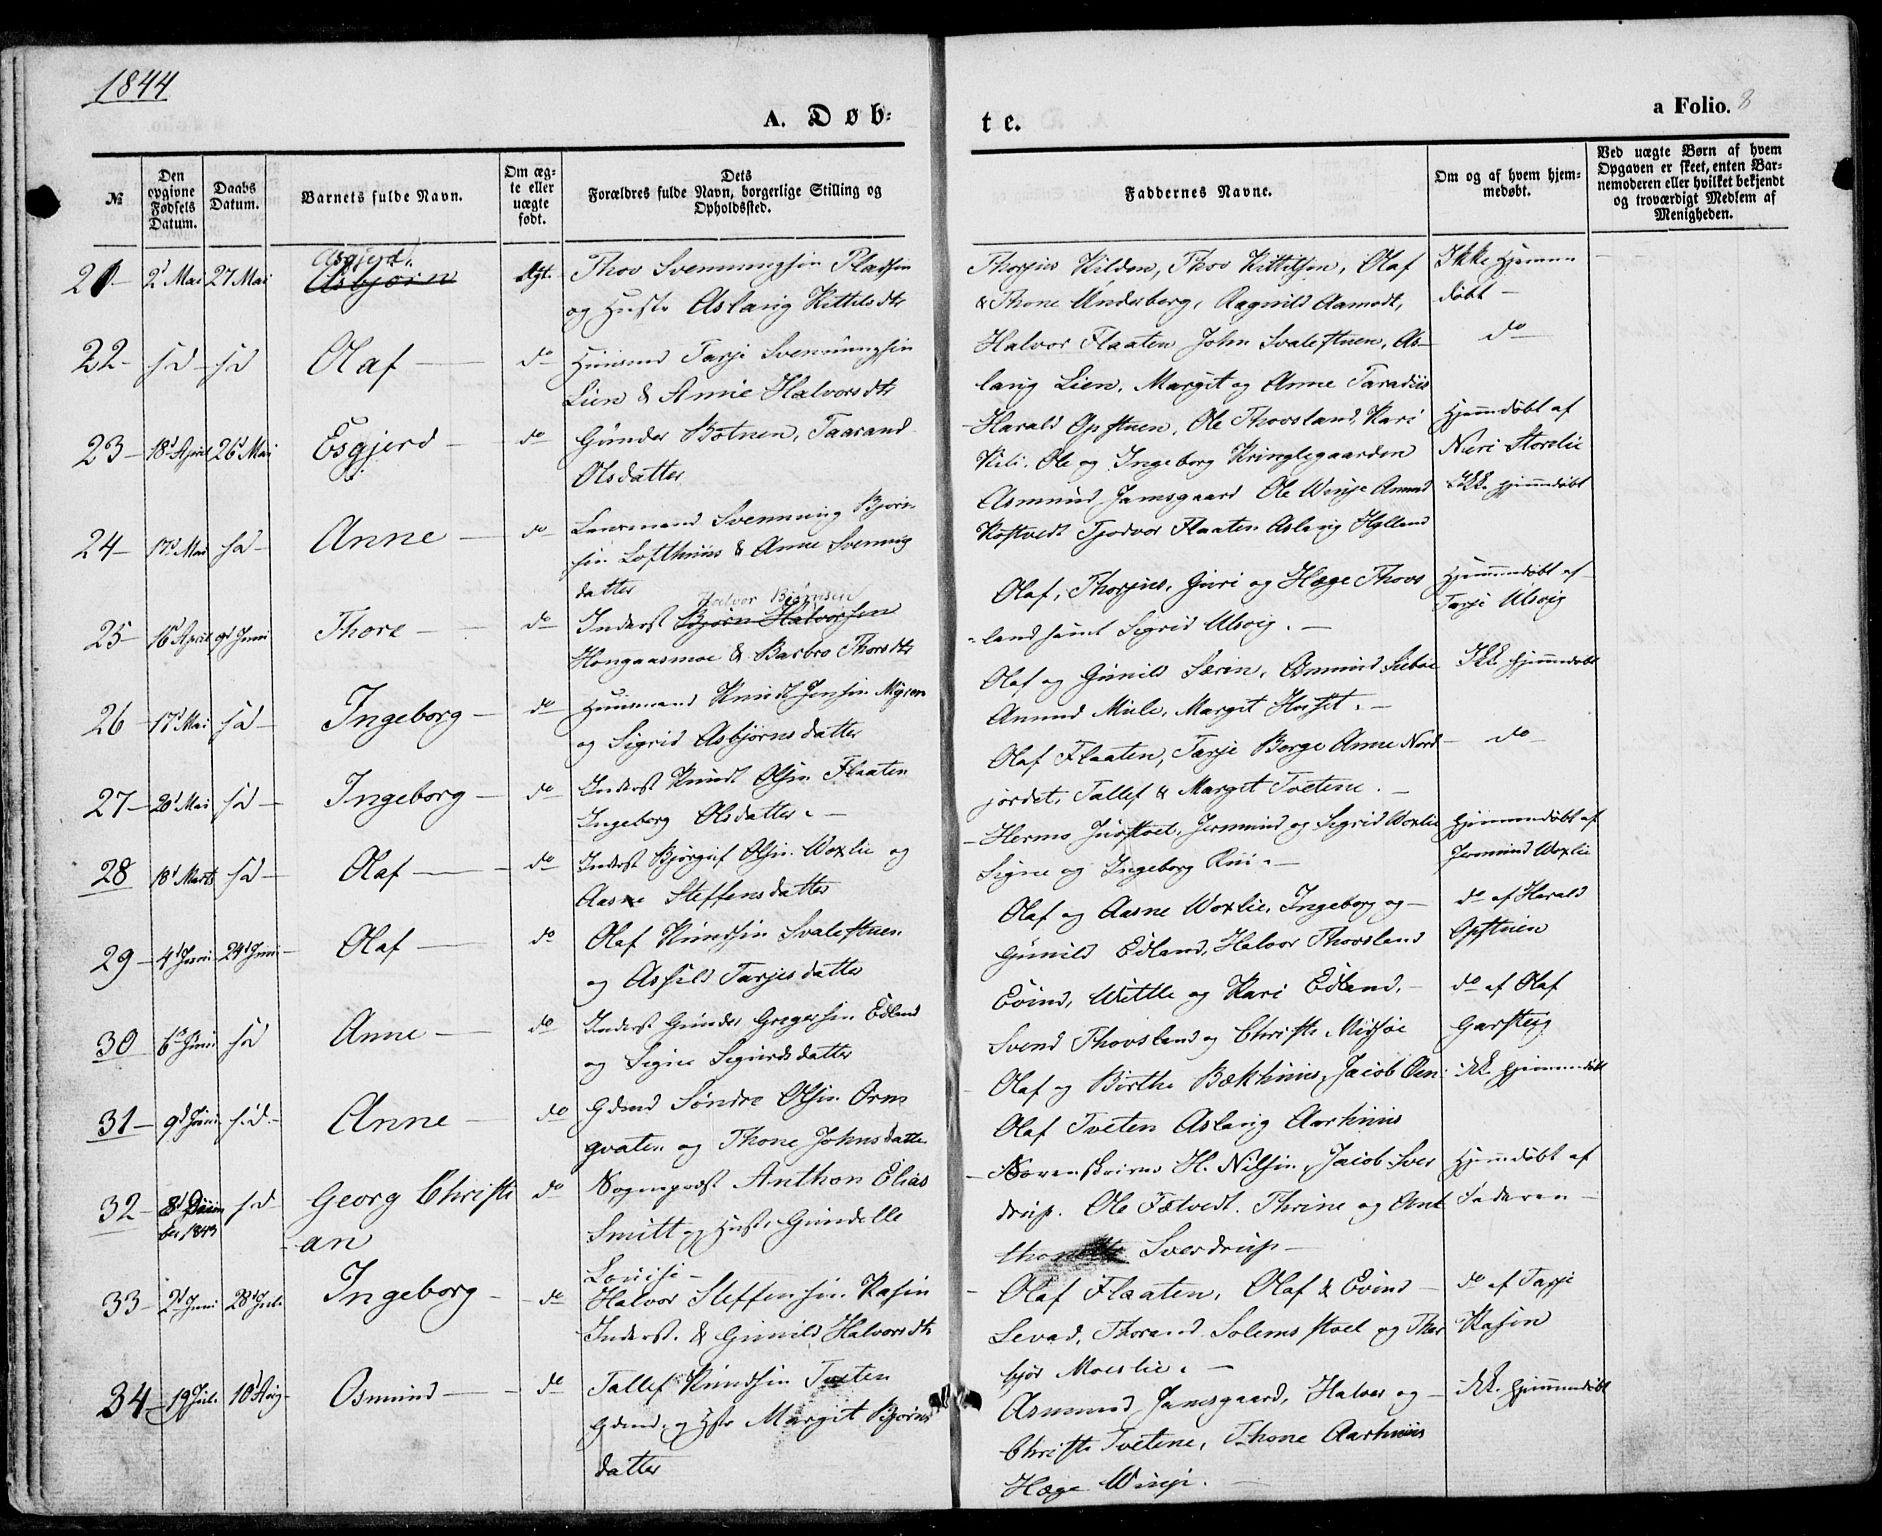 1844
A. Døb:
te.
a Folio. 8
№
Den opgivne Fødsels Datum.
Daabs Datum.
Barnets fulde Navn.
Om ægte eller uægte født.
Dets Forældres fulde Navn, borgerlige Stilling og Opholdssted.
Faddernes Navne.
Om og af hvem hjemmedøbt.
Ved uægte Børn af hvem Opgaven er skeet, enten Barnemoderen eller hvilket bekjendt og troværdigt Medlem af Menigheden.
21 2d Mai 27 Mai Asgjerd. Asbjørn Ægt. Thov Svennungsen Pladsen
og Hustr Aslaug Kittilsdtr
Thorjus Kilden, Thov Kittilsen, Olaf
& Thone Underberg, Ragnild Aamodt,
Ikke hjemme
døbt
22 sd sd Olaf do Huusmd Tarje Svennungsen
Lien & Anne Halvorsdtr
Halvor Flaaten John Svalestuen, As-
laug Lien, Margit og Anne Taradiis
do
23 18d April 26d Mai Esgjerd do Gunder Botnen, Taarand
Olsdatter
Harald Opstuen, Ole Thovsland, Kari
Kili, Ole og Ingeborg Kringlegaarden
Hjemdøbt af
Neri Storelie
24 17d Mai sd Anne do Lensmand Svennung Bjørn
sen Lofthuus & Anne Svennung
datter
Asmund Jamsgaard Ole Winje Amund
Kostvedt Tjodvor Flaaten Aslaug Hylland
Ikk hjemmdøbt
25 16d April 9d Juni Thore do Inderst Bjørn Halvorsen Halvor Bjørnsen
Hongaasmoe & Barbro Thorsdtr
Olaf, Thorjus, Guri og Hæge Thovs
land samt Sigrid Ulevig.
Hjemmedøbt af
Tarje Ulevig
26 17d Mai sd Ingeborg do Huusmand Knud Jensen Myren
og Sigrid Asbjørnsdatter
Olaf og Gunild
Amund Mule, Margit Huset.
Ikk hjemmedøbt
27 20d Mai sd Ingeborg do Inderst Knud Olsen Flaaten
Ingeborg Olsdatter
Olaf Flaaten, Tarje Berge Anne Nord
jordet, Tallef & Margit Tvetene.
do
28 18d Marts sd Olaf do Inderst Bjørguf Olsen Woxlie og
Aasne Steffensdatter
Hermo Juvstoel, Jermund og Sigrid Woxlie
Signe og Ingeborg Rui.
Hjemmendøbt af
Jermund Woxlie
29 4d Juni 24d Juni Olaf do Olaf Knudsen Svalestuen
og Ashild Tarjesdatter
Olaf og Aasne Woxlie, Ingeborg og
Gunild Edland, Halvor Thovsland
do af Harald
Opstuen
30 6d Juni sd Anne do Inderst Gunder Gregersen Edland
og Signe Sigurdsdatter
Evind, Kittle og Kari Edland,
Svend Thovsland og Christi Midsøe
do af Olaf
Garsteig
31 9d Juni sd. Anne do Gdmd Søndre Olsen Orm
gvaten og Thone Johnsdatter
Olaf og Birthe Bækhuus, Jacob Oen
Olaf Tveten Aslaug Aarhuus
ikk hjemmendøbt
32 8d Decem
ber 1843 sd Georg Christi
an do Sognepræst Anthon Elias
Smitt og Hustr. Gundelle
Louise
Sorenskriver H. Nilsen, Jacob Sver
drup. Ole Tætvedt. Thrine og Ant
thonette Sverdrup
Hjemdøbt af
Faderen
33 2d Juni 28d Juli Ingeborg do Halvor Steffensen Kasin
Inderst. & Gunild Halvorsdtr
Olaf Flaaten, Olaf & Evind
Levad, Thorand Solemsstoel og Thor
bjør Moeslie.
do af Tarje
Kasin
34 19 Juli 10d Aug Osmund do Tallef Knudsen Tveten
Gdmd og Hstr Margit Bjørns
datter
Asmund Jamsgaard, Halvor og
Christi Tvetene, Thone Aarhuus
Hæge Winje.
ikk hjemmendøbt